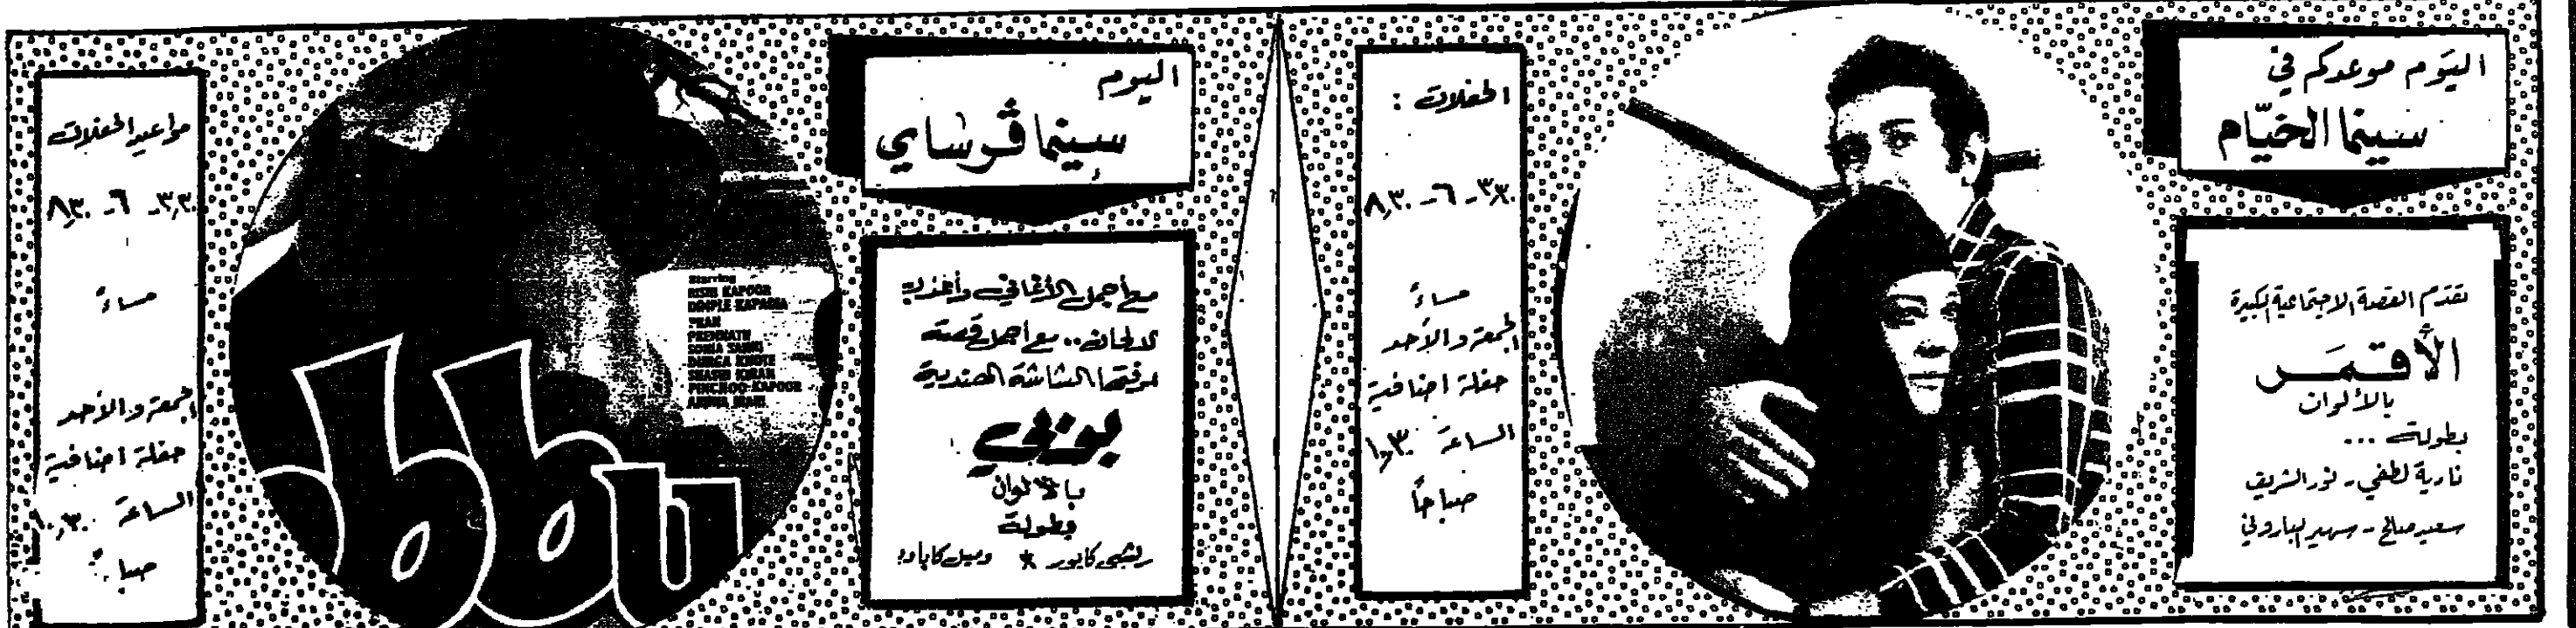 اليوم موعدكم في
سينما الخيّام
تقدم القصة الاجتماعية الكبيرة
الأقمَر
بالألوان
بطولة ...
نادية لطفي - نور الشريف
سعيد صالح - سهير الباروني
الحفلات :
٣,٣٠ - ٦ - ٨,٣٠
مساءً
الجمعة والأحد
حفلة اضافية
الساعة ١٠,٣٠
صباحاً
اليوم
سينما ڤرساي
مع أجمل الأغاني وأعذب
الالحان .. مع اجمل قصة
عرفتها الشاشة الهندية
بوبي
بالألوان
بطولة
ريشي كابور *
Starring
RISHI KAPOOR
DIMPLE KAPADIA
PRAN
PREMNATH
SONIA SAHNI
DURGA KHOTE
SHASHI KIRAN
PINCHOO KAPOOR
obby
مواعيد الحفلات
٣,٣٠ - ٦ - ٨,٣٠
مساءً
الجمعة والأحد
حفلة اضافية
الساعة ١٠,٣٠
صباحاً